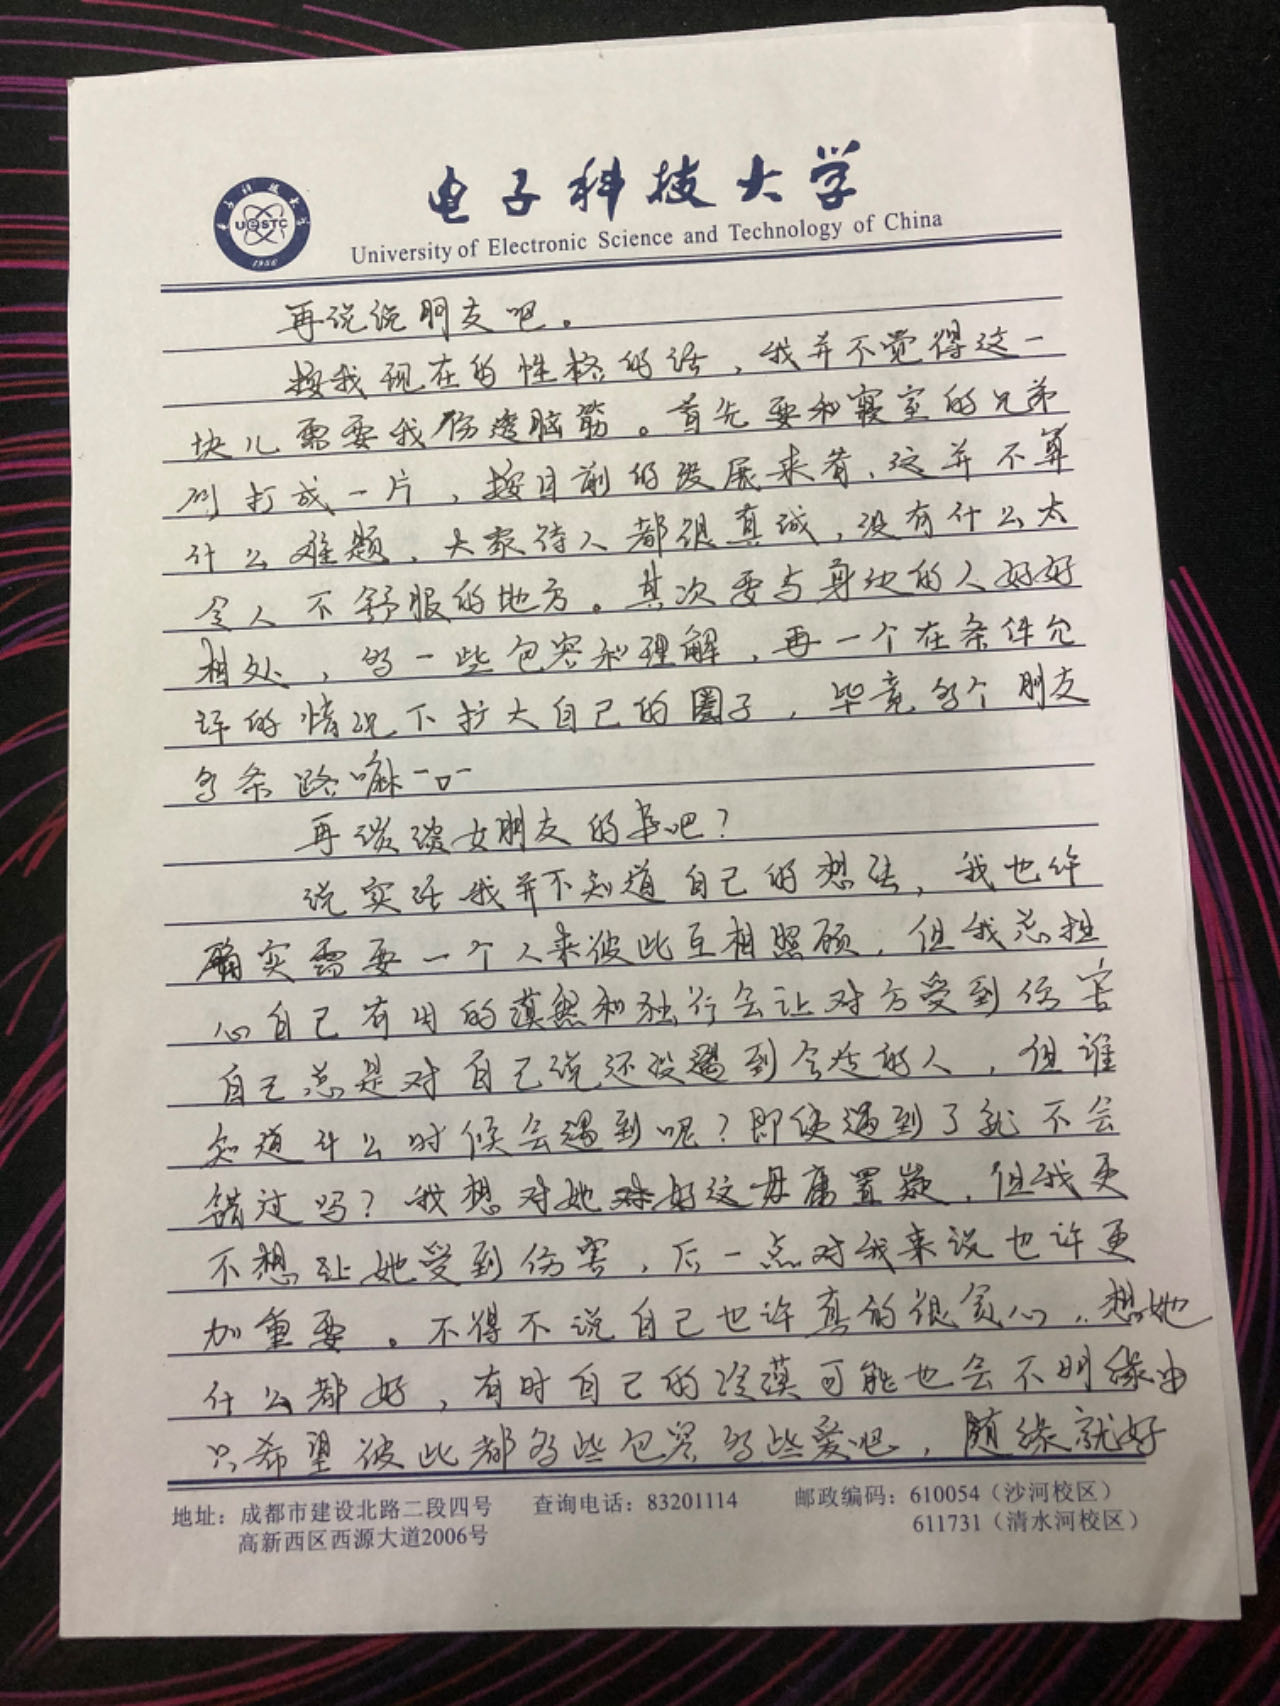 电子科技大学
University of Electronic Science and Technology of China
UESTC
1956
再说说朋友吧。
按我现在的性格的话，我并不觉得这一
块儿需要我伤透脑筋。首先要和寝室的兄弟
们打成一片，按目前的发展来看，这并不算
什么难题，大家待人都很真诚，没有什么太
令人不舒服的地方。其次要与身边的人好好
相处，多一些包容和理解，再一个在条件允
许的情况下扩大自己的圈子，毕竟多个朋友
多条路嘛-口-
再谈谈女朋友的事吧？
说实话我并不知道自己的想法，我也许
确实需要一个人来彼此互相照顾，但我总担
心自己有用的漠然和独行会让对方受到伤害
自己总是对自己说还没遇到合适的人，但谁
知道什么时候会遇到呢？即使遇到了就不会
错过吗？我想对她好这毋庸置疑，但我更
不想让她受到伤害，后一点对我来说也许更
加重要。不得不说自己也许真的很贪心，想她
什么都好，有时自己的冷漠可能也会不明缘由
只希望彼此都多些包容多些爱吧，随缘就好
地址：成都市建设北路二段四号 查询电话：83201114 邮政编码：610054（沙河校区）
高新西区西源大道2006号 611731（清水河校区）